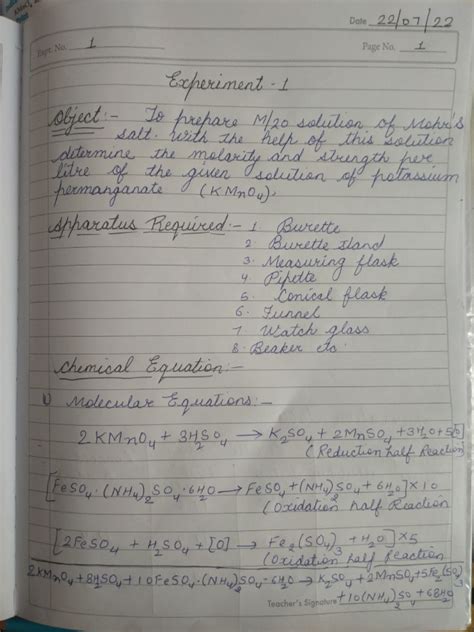 Date 22/07/22
Expt. No. 1
Page No. 1
Experiment - 1
Object:- To prepare M/20 solution of Mohr's
salt. with the help of this solution
determine the molarity and strength per
litre of the given solution of potassium
permanganate (KMnO4).
Apparatus Required:- 1. Burette
2. Burette stand
3. Measuring flask
4. Pipette
5. Conical flask
6. Funnel
7. Watch glass
8. Beaker etc.
Chemical Equation:-
Molecular Equations:-
2KMnO4 + 3H2SO4 → K2SO4 + 2MnSO4 + 3H2O + 5[O]
(Reduction half Reaction)
[FeSO4·(NH4)2SO4·6H2O → FeSO4 + (NH4)2SO4 + 6H2O] × 10
(Oxidation half Reaction
[2FeSO4 + H2SO4 + [O] → Fe2(SO4)3 + H2O] × 5
(Oxidation half reaction
2KMnO4 + 8H2SO4 + 10FeSO4·(NH4)2SO4·6H2O → K2SO4 + 2MnSO4 + 5Fe2(SO4)3
Teacher's Signature + 10(NH4)2SO4 + 68H2O